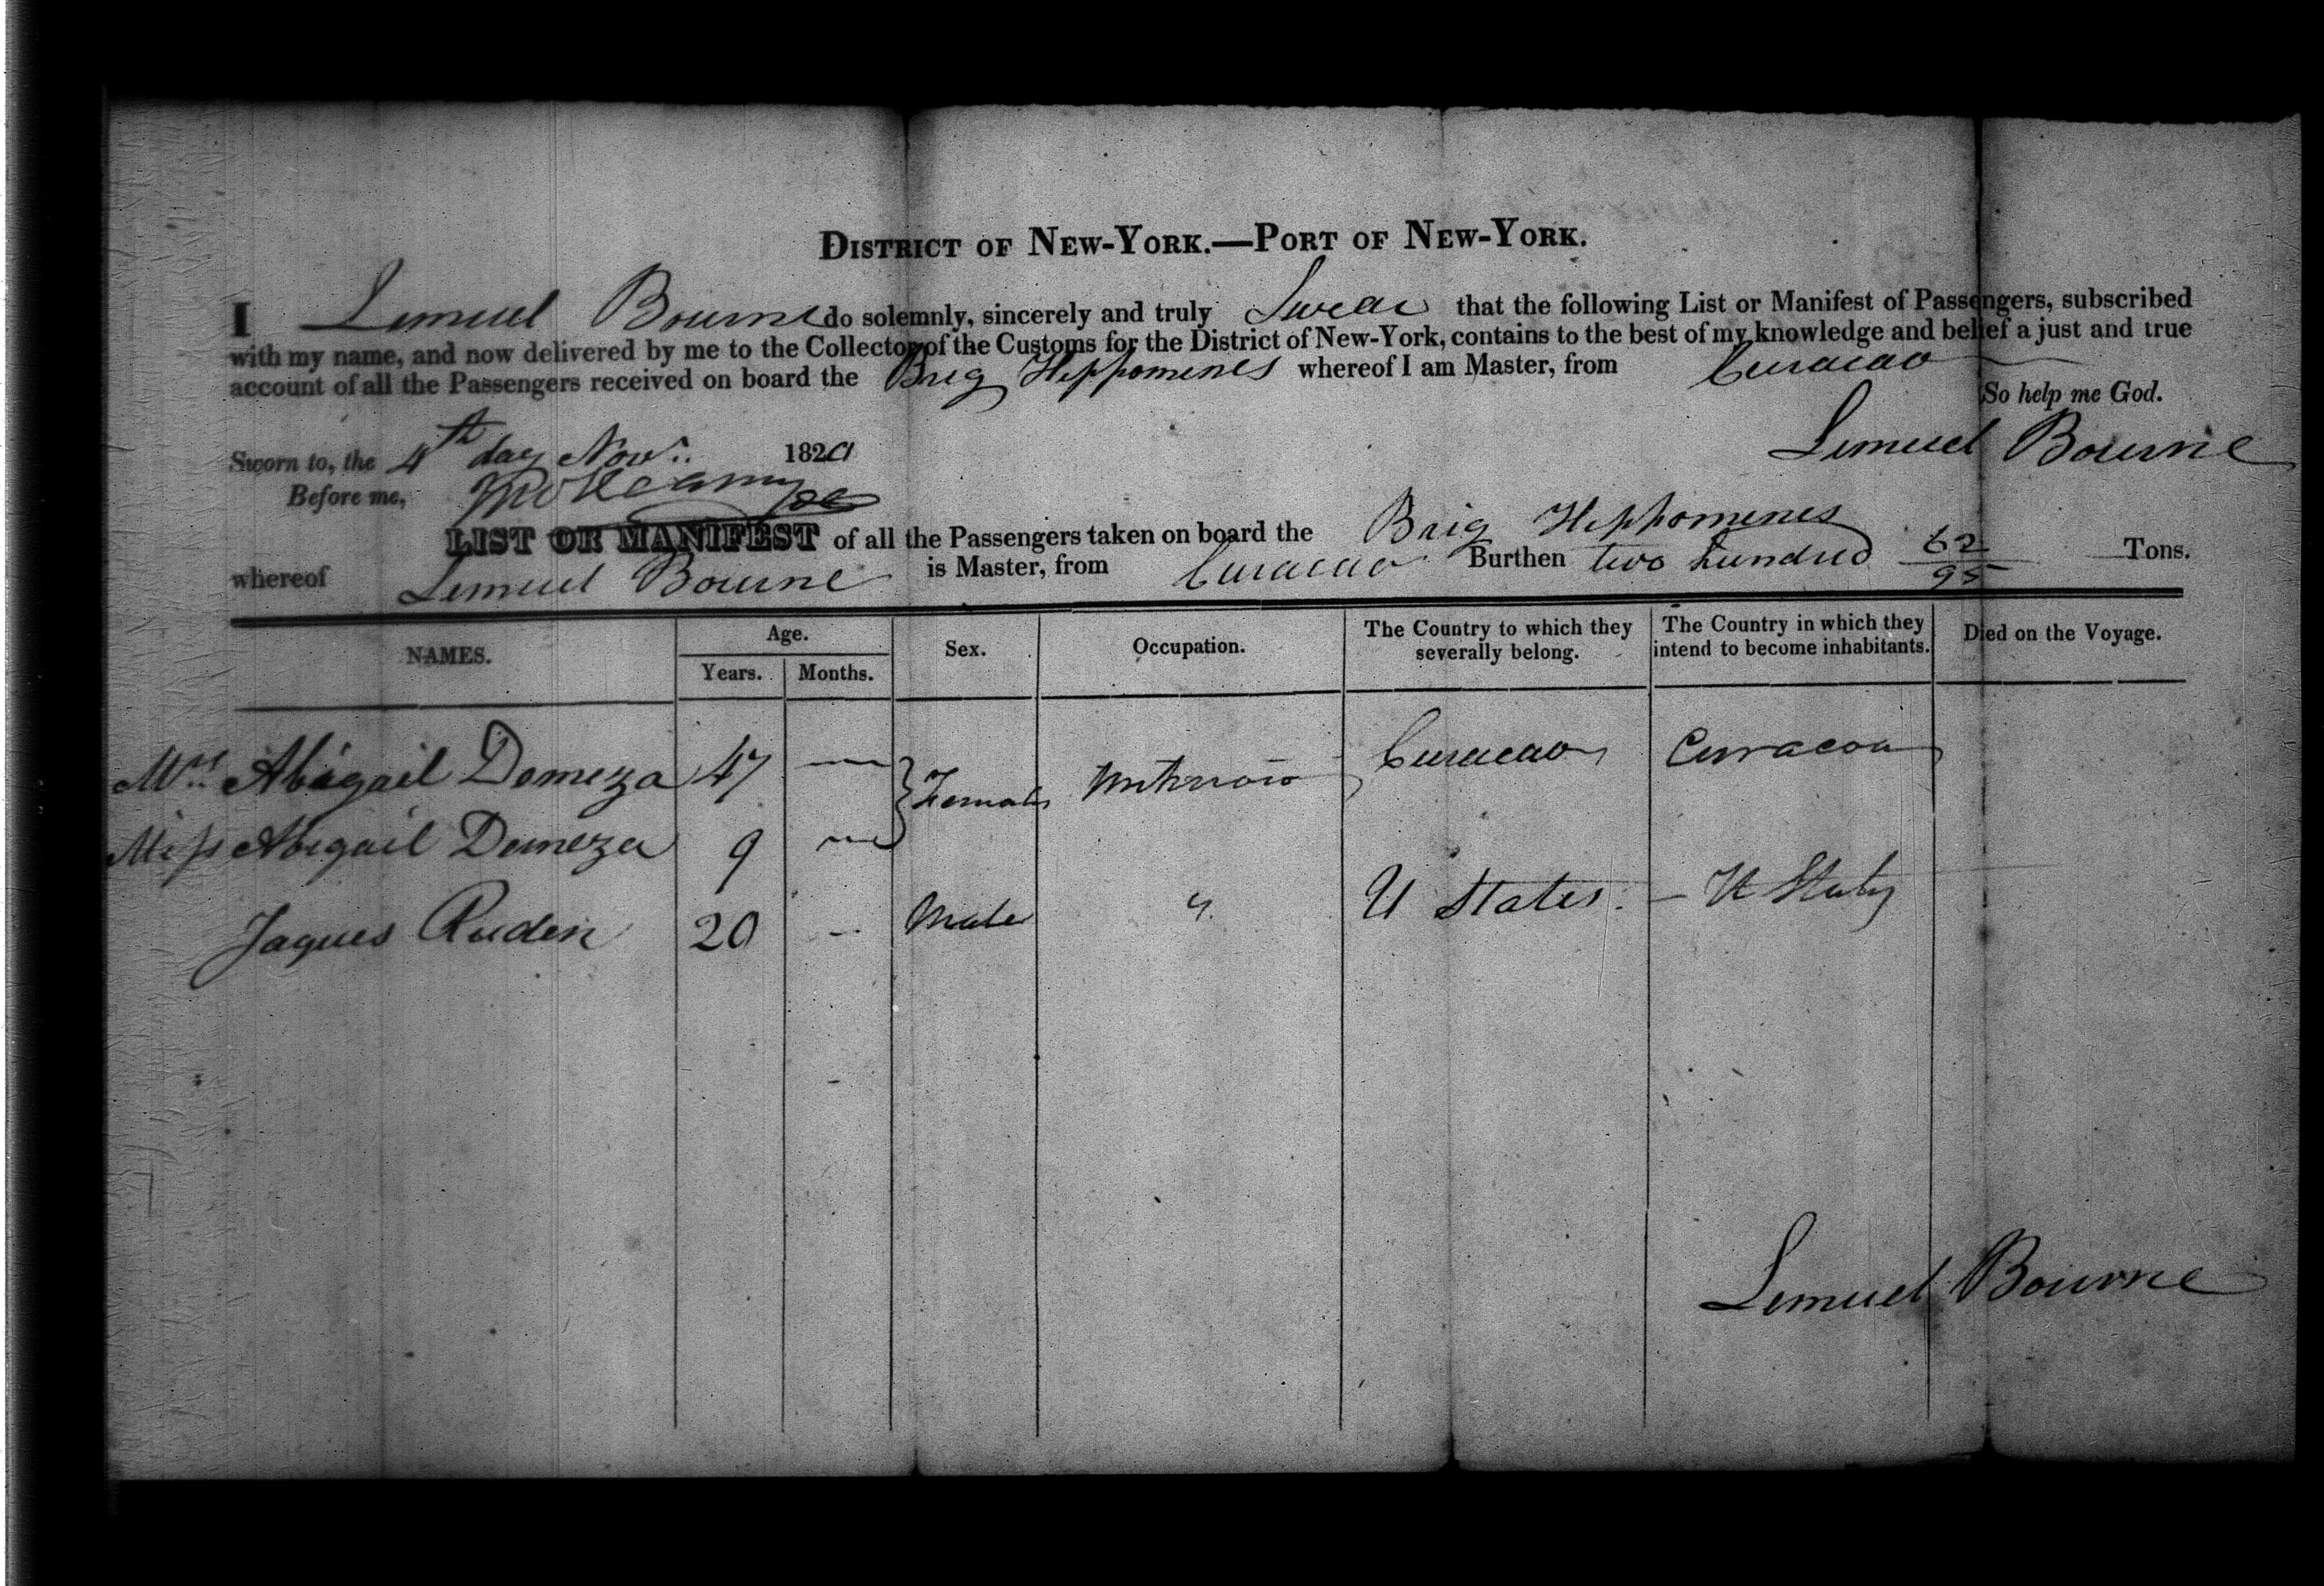 DISTRICT OF NEW-YORK.—PORT OF NEW-YORK.
I Lemuel Bourne do solemnly, sincerely and truly Swear that the following List or Manifest of Passengers, subscribed
with my name, and now delivered by me to the Collector of the Customs for the District of New-York, contains to the best of my knowledge and belief a just and true
account of all the Passengers received on board the Brig Hippomenes whereof I am Master, from Curacao
So help me God.
Sworn to, the 4th day Novr. 182
Lemuel Bourne
Before me,
LIST OR MANIFEST of all the Passengers taken on board the Brig Hippomenes
whereof Lemuel Bourne is Master, from Curacao Burthen two hundred 62/95 Tons.
NAMES. Age. Sex. Occupation. The Country to which they severally belong. The Country in which they intend to become inhabitants. Died on the Voyage.
Years. Months.
Mrs Abigail Demeza 47 — } Female Unknown Curacao Curacoa
Miss Abigail Demeza 9 —
Jaques Ruden 20 — Male " U States. — U States
Lemuel Bourne